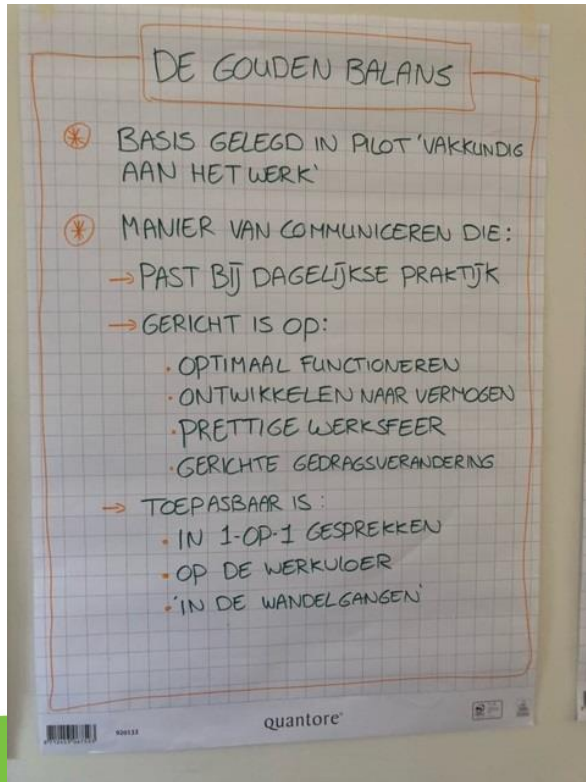 DE GOUDEN BALANS
BASIS GELEGD IN PILOT 'VAKKUNDIG
AAN HET WERK'
MANIER VAN COMMUNICEREN DIE:
→ PAST BIJ DAGELIJKSE PRAKTIJK
→ GERICHT IS OP:
· OPTIMAAL FUNCTIONEREN
· ONTWIKKELEN NAAR VERMOGEN
· PRETTIGE WERKSFEER
· GERICHTE GEDRAGSVERANDERING
→ TOEPASBAAR IS:
· IN 1-OP-1 GESPREKKEN
· OP DE WERKVLOER
· 'IN DE WANDELGANGEN'
quantore